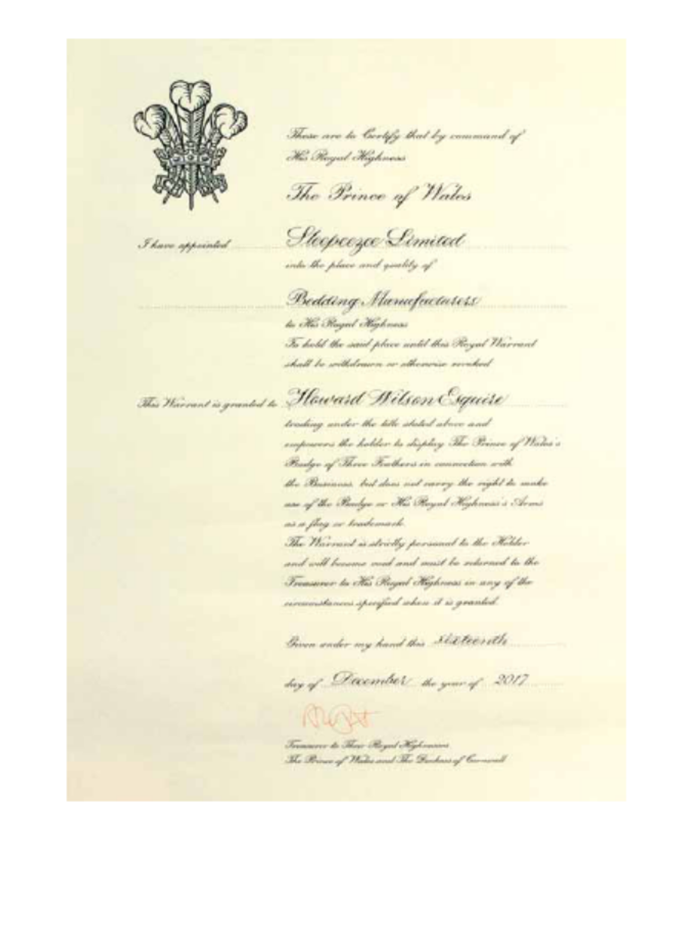 These are to Certify that by command of
His Royal Highness
The Prince of Wales
I have appointed Sleepeezee Limited
into the place and quality of
Bedding Manufacturers
to His Royal Highness
To hold the said place until this Royal Warrant
shall be withdrawn or otherwise revoked
This Warrant is granted to Howard Wilson Esquire
trading under the title stated above and
empowers the holder to display The Prince of Wales's
Badge of Three Feathers in connection with
the Business, but does not carry the right to make
use of the Badge or His Royal Highness's Arms
as a flag or trademark.
The Warrant is strictly personal to the Holder
and will become void and must be returned to the
Treasurer to His Royal Highness in any of the
circumstances specified when it is granted.
Given under my hand this sixteenth
day of December the year of 2017
Treasurer to Their Royal Highnesses
The Prince of Wales and The Duchess of Cornwall